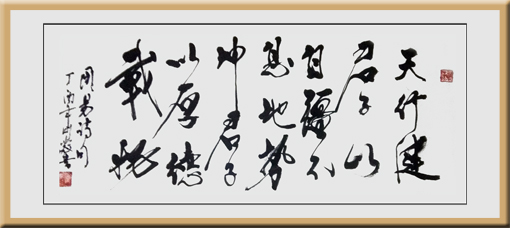 天行健
君子以
自彊不
息地势
坤君子
以厚德
載物
周易诗句
丁酉年